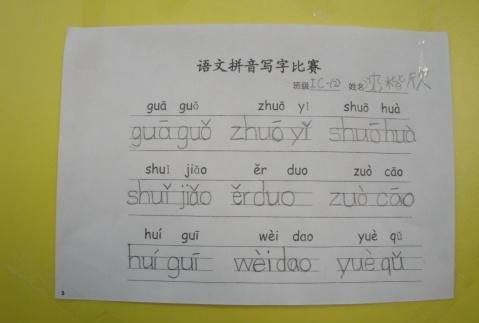 语文拼音写字比赛
班级 IC-(2) 姓名 沈楷欣
guā guǒ zhuō yǐ shuō huà
guā guǒ zhuō yǐ shuō huà
shuǐ jiǎo ěr duo zuò cāo
shuǐ jiǎo ěr duo zuò cāo
huí guī wèi dao yuè qǔ
huí guī wèi dao yuè qǔ
3